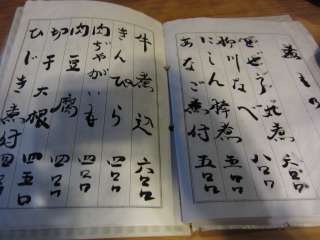 煮もの
どぜう丸煮 六〇〇
柳川なべ 八〇〇
にしん棒煮 五〇〇
あなご煮付 五〇〇
牛煮込 六〇〇
きんぴら 四〇〇
肉じゃがいも 四〇〇
肉豆腐 六〇〇
切干大根 四五〇
ひじき煮付 四